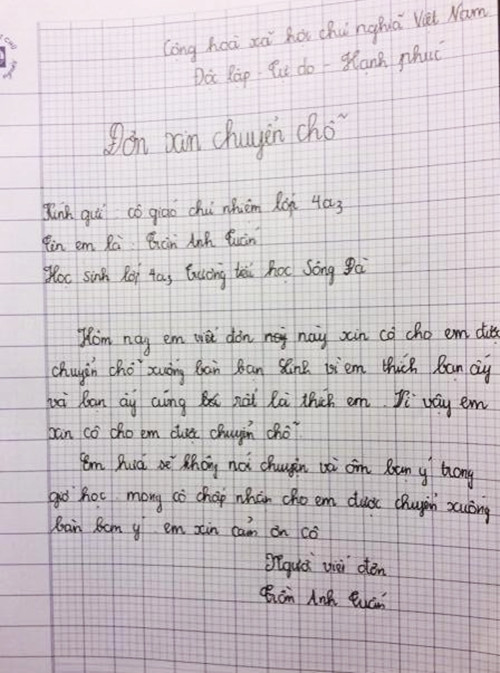 Cộng hoà xã hội chủ nghĩa Việt Nam
Độc lập - Tự do - Hạnh phúc
Đơn xin chuyển chỗ
Kính gửi cô giáo chủ nhiệm lớp 4a3
Tên em là: Trần Anh Tuấn
Học sinh lớp 4a3 trường tiểu học Sông Đà
Hôm nay em viết đơn này xin cô cho em được
chuyển chỗ xuống bàn bạn Linh vì em thích bạn ấy
và bạn ấy cũng rất là thích em. Vì vậy em
xin cô cho em được chuyển chỗ.
Em hứa sẽ không nói chuyện và ôm bạn ý trong
giờ học. mong cô chấp nhận cho em được chuyển xuống
bàn bạn ý em xin cảm ơn cô
Người viết đơn
Trần Anh Tuấn